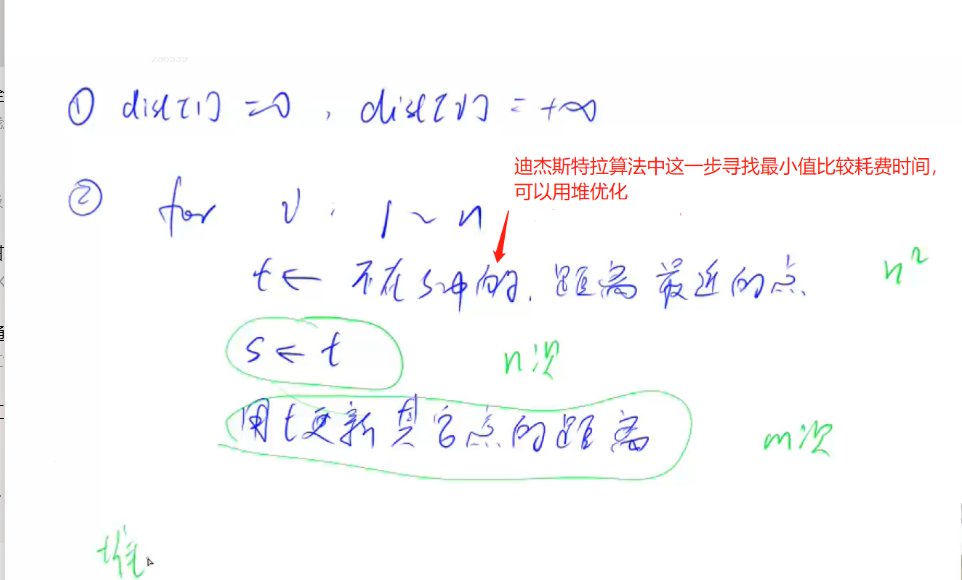 ① dist[1]=0, dist[v]=+∞
迪杰斯特拉算法中这一步寻找最小值比较耗费时间，
可以用堆优化
② for v: 1~n
t← 不在s中的, 距离最近的点. n²
s←t n次
用t更新其它点的距离 m次
堆